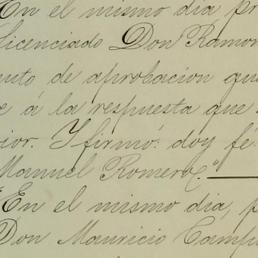 "En el mismo dia pr
Licenciado Don Ramon
nto de aprobacion qu
e á la respuesta que s
ior. Y firmó: doy fé.
Manuel Romero."
"En el mismo dia, p
Don Mauricio Camp